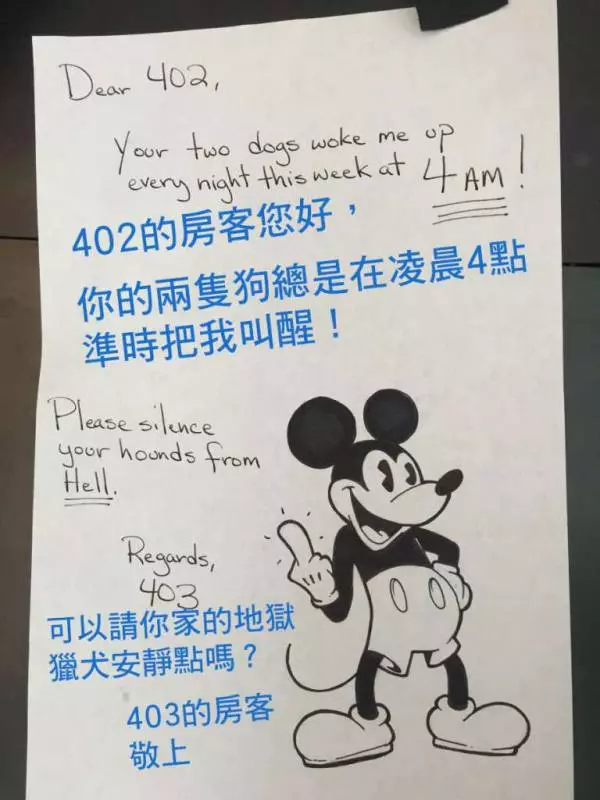 Dear 402,
Your two dogs woke me up
every night this week at 4 AM!
402的房客您好，
你的兩隻狗總是在凌晨4點
準時把我叫醒！
Please silence
your hounds from
Hell.
Regards,
403
可以請你家的地獄
獵犬安靜點嗎？
403的房客
敬上